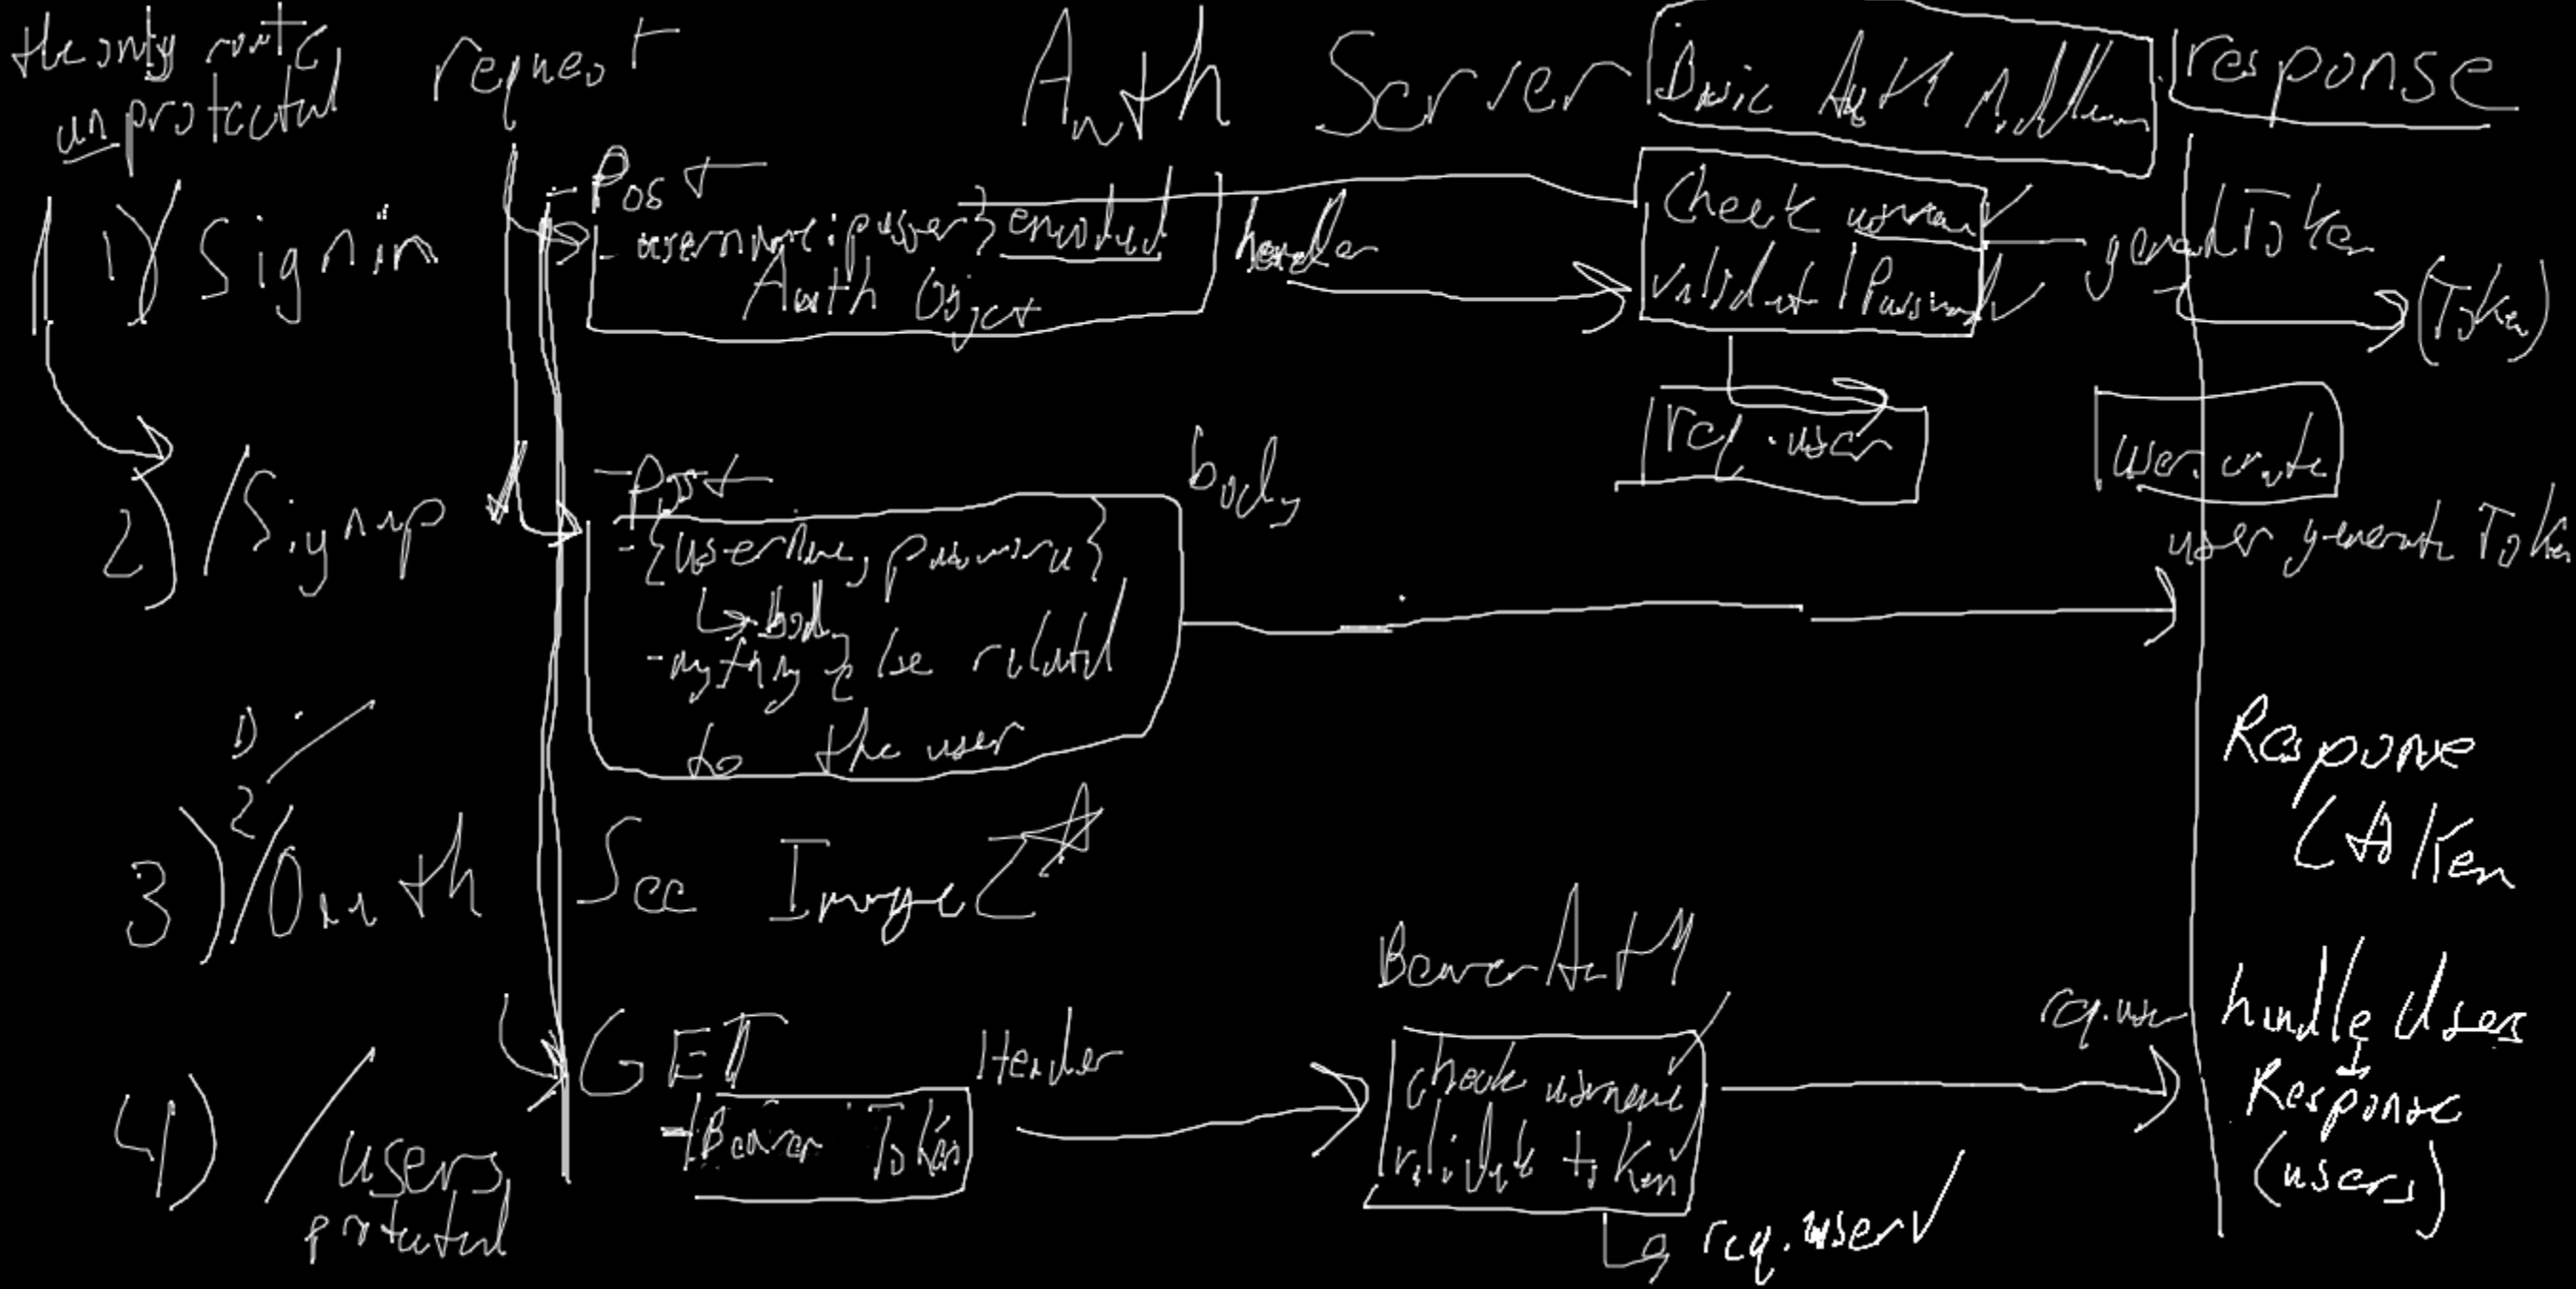 the only route
unprotected
request
Auth Server
Basic Auth
response
1) / Signin
- Post
- username: } encoded
Auth Object
header
check
validate
generateToken
(Token)
req.user
2) /Signup
- Post
- { username, password }
body
be related
to the user
body
user generate Token
1) /
2
3) /Oauth
See Image
Response
(token
4) /users
protected
GET
Header
- Bearer Token
BearerAuth
check username
validate token
req.user
req.user
handle Users
Response
(users)